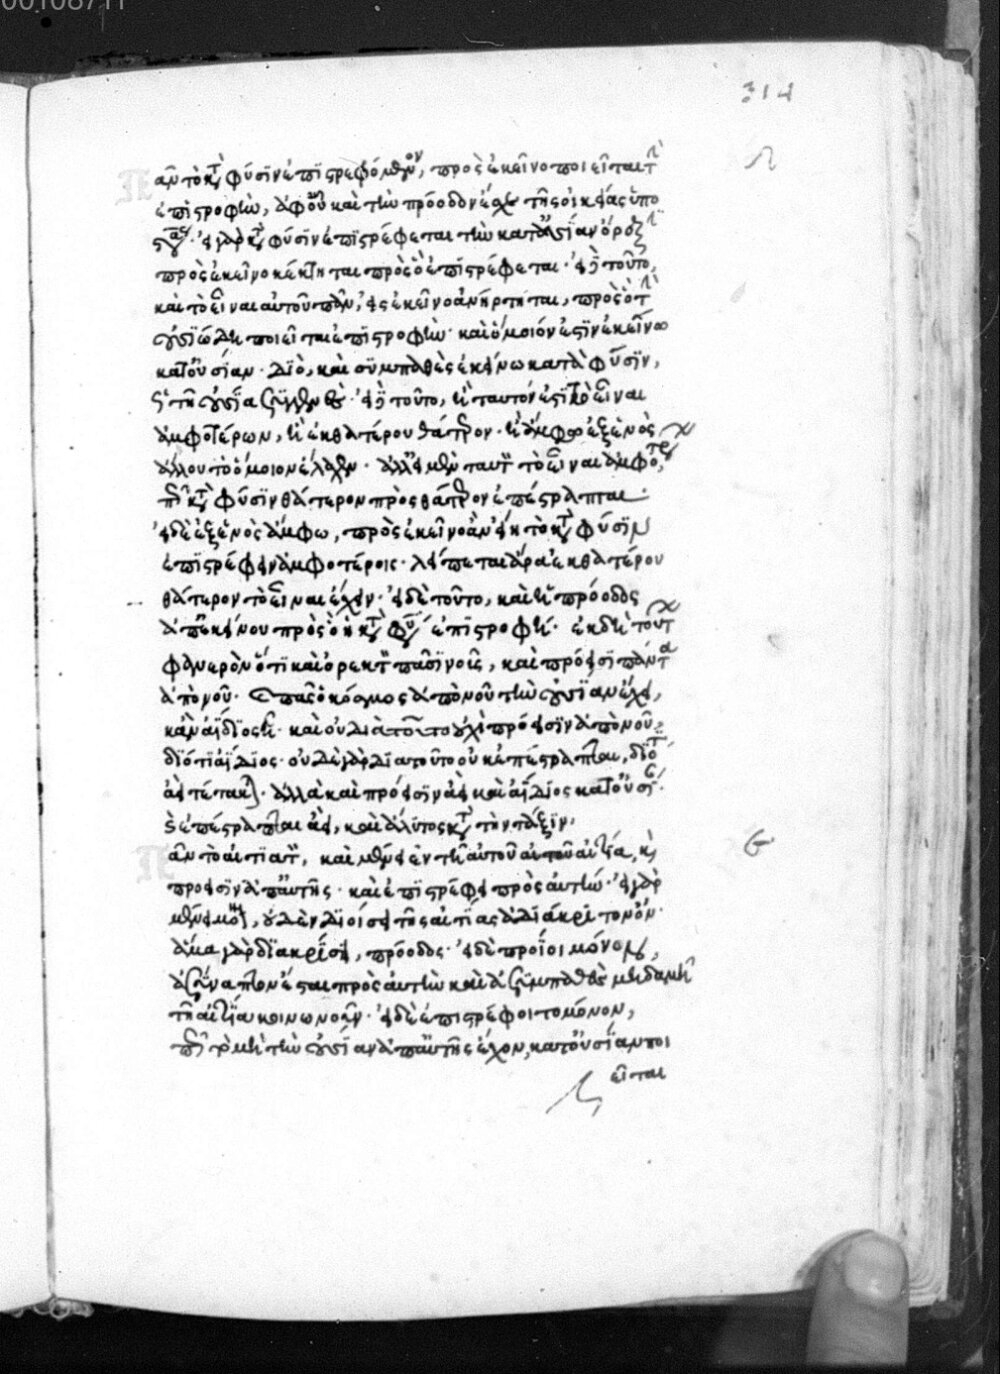 ᾶν τὸ κατὰ φύσιν ἐπιστρεφόμενον, πρὸς ἐκεῖνο ποιεῖται τὴν
ἐπιστροφὴν, ἀφ' οὗ καὶ τὴν πρόοδον ἔσχε τῆς οἰκείας ὑπο
στάσεως· εἰ γὰρ κατὰ φύσιν ἐπιστρέφεται τὴν κατ' οὐσίαν ὄρεξιν
πρὸς ἐκεῖνο κέκτηται πρὸς ὃ ἐπιστρέφεται· εἰ δὲ τοῦτο,
καὶ τὸ εἶναι αὐτοῦ πᾶν, εἰς ἐκεῖνο ἀνήρτηται, πρὸς ὃ τὴν
οὐσιώδη ποιεῖται ἐπιστροφὴν· καὶ ὅμοιόν ἐστιν ἐκείνω
κατ' οὐσίαν· διὸ, καὶ συμπαθὲς ἐκείνω κατὰ φύσιν,
ὡς τῆ οὐσία συγγενὲς· εἰ δὲ τοῦτο, ἢ ταυτόν ἐστι τὸ εἶναι
ἀμφοτέρων, ἢ ἐκ θατέρου θάτερον· ἢ ἄμφω ἐξ ἑνὸς
ἄλλου τὸ ὅμοιον ἔλαχεν· ἀλλ' εἰ μὲν ταυτὸν τὸ εἶναι ἀμφοτέρων,
πῶς κατὰ φύσιν θάτερον πρὸς θάτερον ἐπέστραπται·
εἰ δὲ ἐξ ἑνὸς ἄμφω, πρὸς ἐκεῖνο ἂν εἴη τὸ κατὰ φύσιν
ἐπιστρέφειν ἀμφοτέροις· λείπεται ἄρα ἐκ θατέρου
θάτερον τὸ εἶναι ἔχειν· εἰ δὲ τοῦτο, καὶ ἡ πρόοδος
ἀπ' ἐκείνου πρὸς ὃ ἡ κατὰ φύσιν ἐπιστροφή· ἐκ δὴ τούτων
φανερὸν ὅτι καὶ ὀρεκτὸν πᾶσι νοῦς, καὶ πρόεισι πάντα
ἀπὸ νοῦ· πᾶς ὁ κόσμος ἀπὸ νοῦ τὴν οὐσίαν ἔχει,
κἂν ἀΐδιος ἦ· καὶ οὐ διὰ τοῦτο οὐχὶ πρόεισιν ἀπὸ νοῦ
διότι ἀΐδιος· οὐδὲ γὰρ διὰ τοῦτο οὐκ ἐπέστραπται, διότι
ἀεὶ τέτακται· ἀλλὰ καὶ πρόεισιν ἀεὶ καὶ ἀΐδιος κατ' οὐσίαν·
καὶ ἐπέστραπται ἀεὶ, καὶ ἄλυτος κατὰ τὴν τάξιν·
ᾶν τὸ αἰτιατὸν, καὶ μένει ἐν τῆ αὐτοῦ αἰτία, καὶ
πρόεισιν ἀπ' αὐτῆς· καὶ ἐπιστρέφει πρὸς αὐτὴν· εἰ γὰρ
μένει μόνον, οὐδὲν διοίσει τῆς αἰτίας ἀδιάκριτον ὄν·
ἅμα γὰρ διακρίσει, πρόοδος· εἰ δὲ προΐοι μόνον,
ἀσύναπτον ἔσται πρὸς αὐτὴν καὶ ἀσυμπαθὲς μηδαμῆ
τῆ αἰτία κοινωνοῦν· εἰ δὲ ἐπιστρέφοιτο μόνον,
πῶς τὸ μὴ τὴν οὐσίαν ἀπ' αὐτῆς ἔχον, κατ' οὐσίαν ποι
εῖται